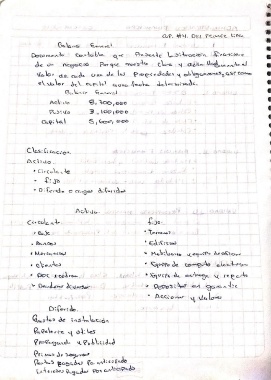 Balance General
Documento contable que Presenta la situacion financiera
de un negocio Porque muestra clara y detalladamente el
valor de cada una de las Propiedades y obligaciones, así como
el valor del capital a una fecha determinada.
Balance General
Activo 8,700,000
Pasivo 3,100,000
Capital 5,600,000
Clasificación
Activo
• Circulante
• fijo
• Diferido o cargos diferidos
Activo
Circulante fijo
• Caja • Terrenos
• Bancos • Edificios
• Mercancias • Mobiliario y equipo de oficina
• clientes • Equipo de computo electronico
• Doc x cobrar • Equipo de entrega y reparto
• Deudores diversos • Depositos en garantia
• Acciones y Valores
Diferido
Gastos de instalación
Papeleria y utiles
Propaganda y Publicidad
Primas de seguros
Rentas pagadas Por anticipado
Intereses Pagados Por anticipado